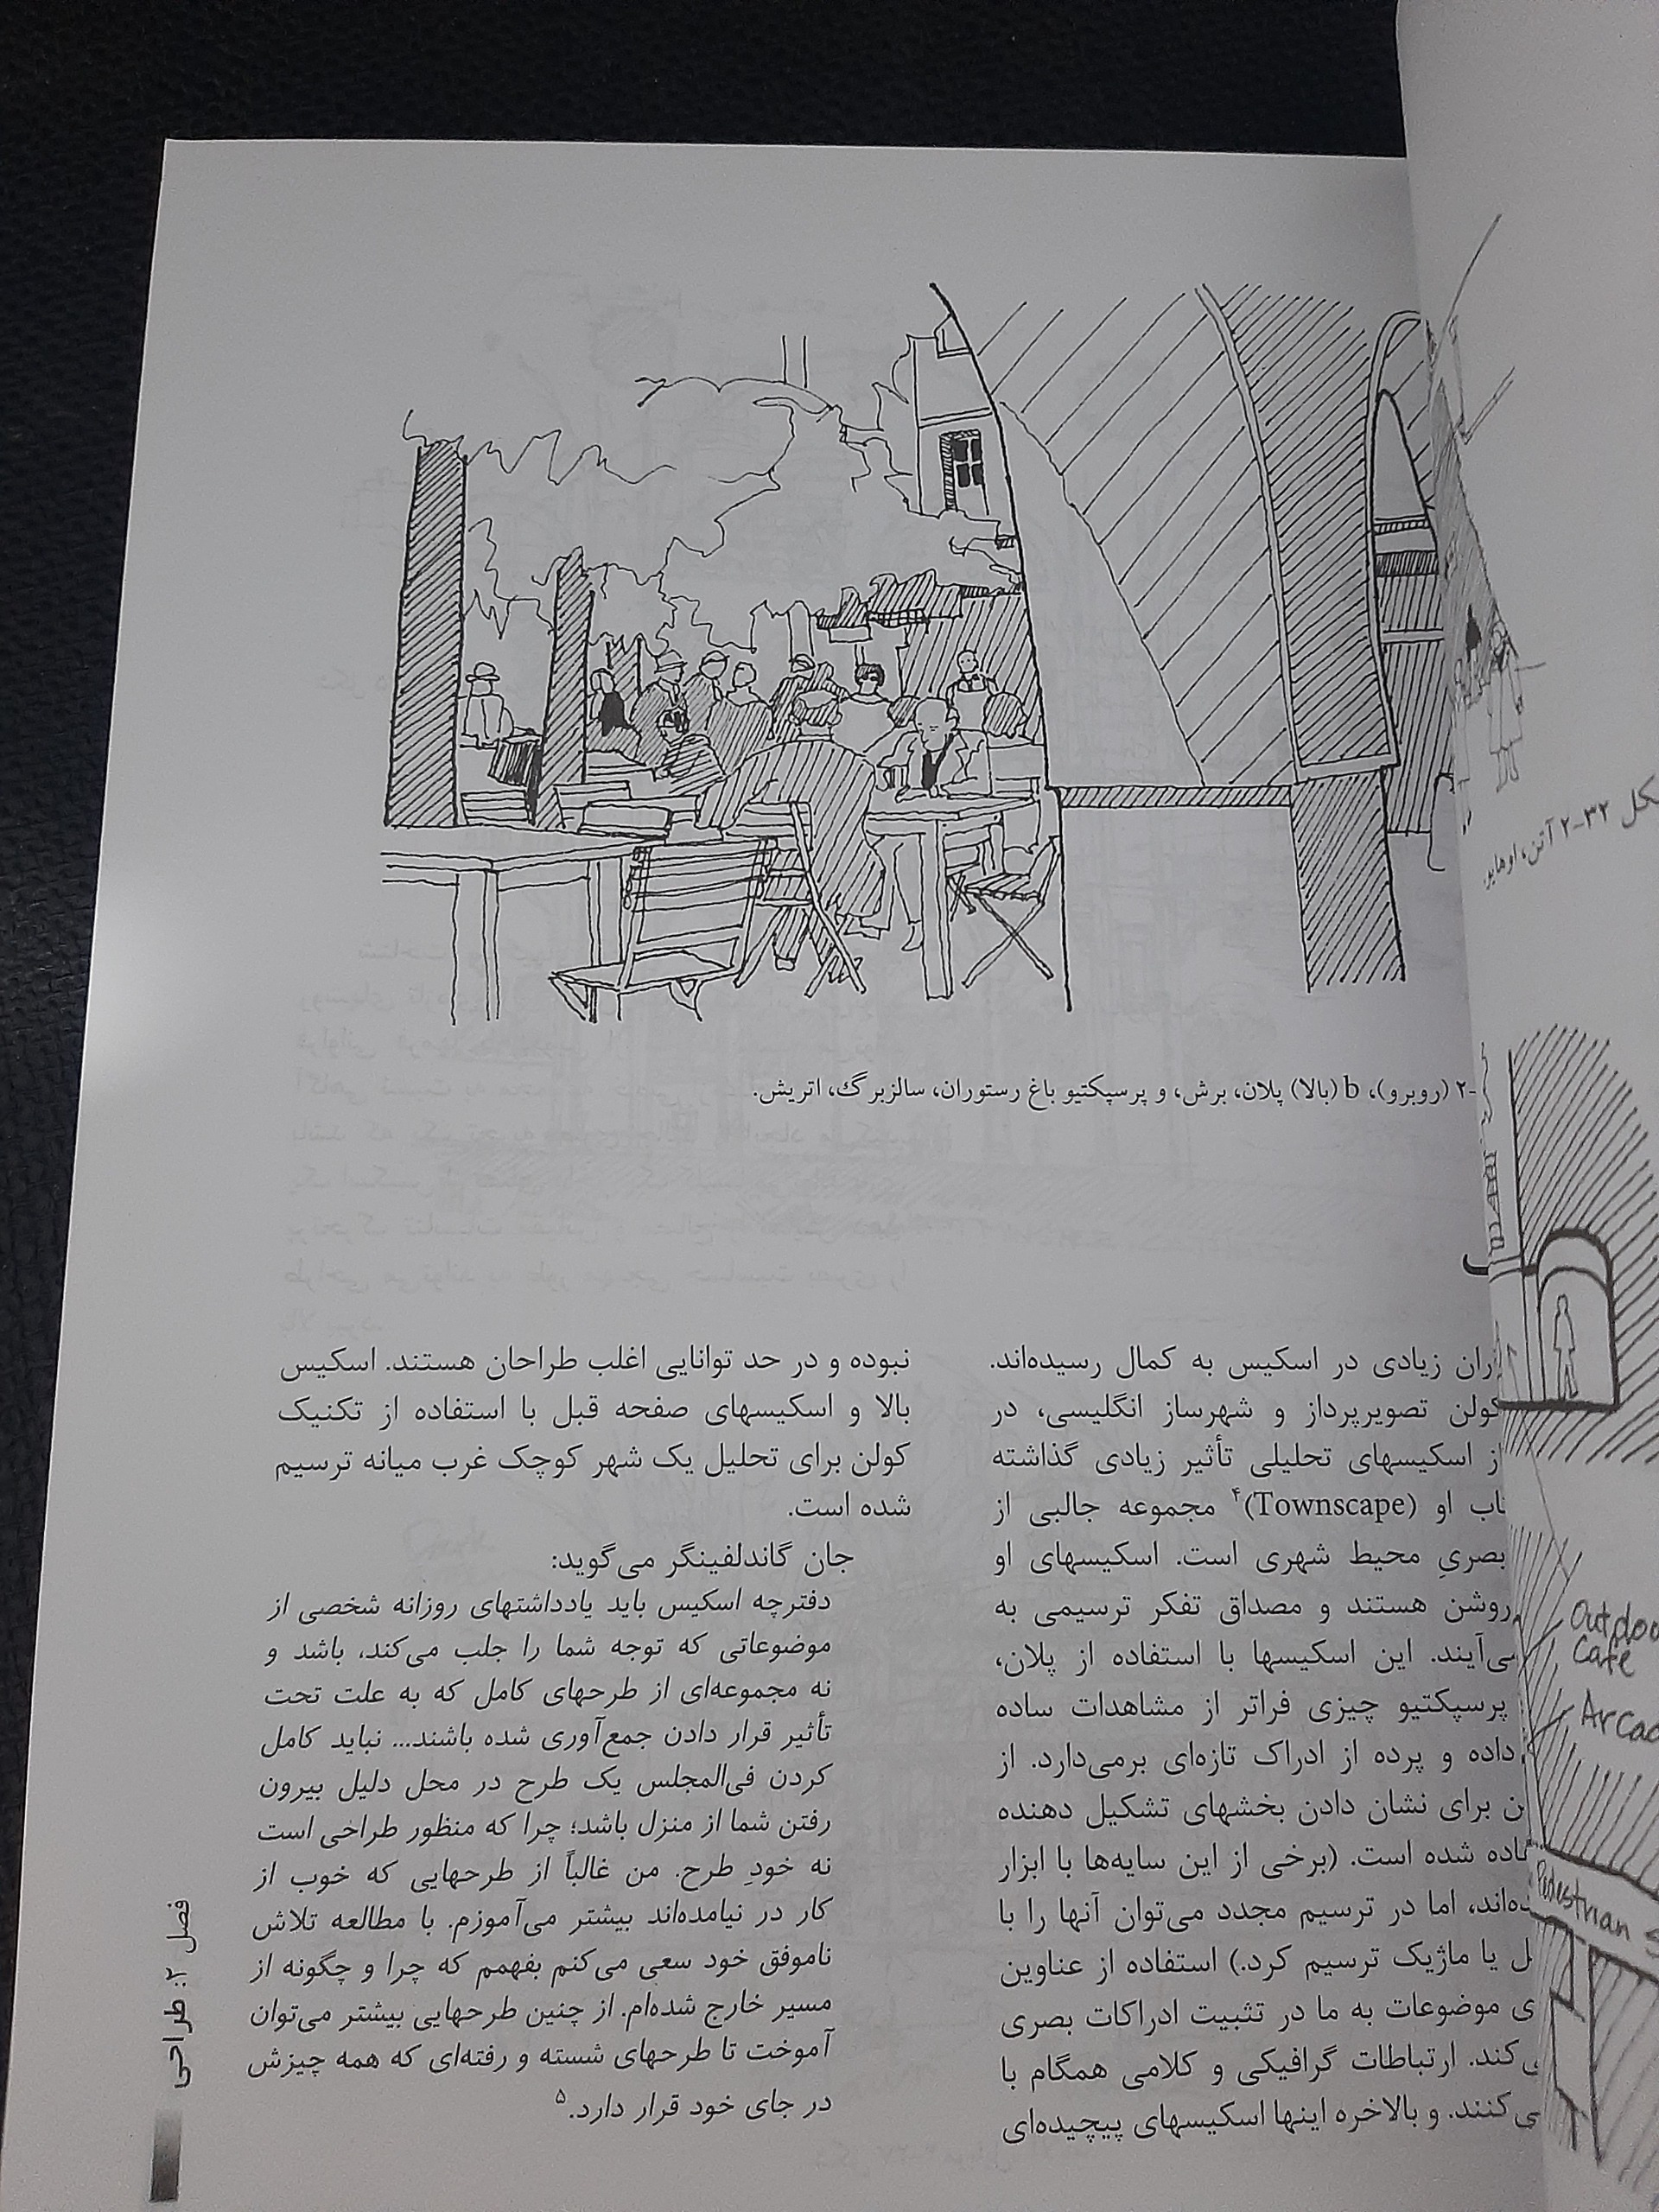 ۲- (روبرو)، b (بالا) پلان، برش، و پرسپکتیو باغ رستوران، سالزبرگ، اتریش.
زیادی در اسکیس به کمال رسیده‌اند.
کولن تصویرپرداز و شهرساز انگلیسی، در
از اسکیسهای تحلیلی تأثیر زیادی گذاشته
او (Townscape)۴ مجموعه جالبی از
بصریِ محیط شهری است. اسکیسهای او
روشن هستند و مصداق تفکر ترسیمی به
می‌آیند. این اسکیسها با استفاده از پلان،
پرسپکتیو چیزی فراتر از مشاهدات ساده
داده و پرده از ادراک تازه‌ای برمی‌دارد. از
برای نشان دادن بخشهای تشکیل دهنده
شده است. (برخی از این سایه‌ها با ابزار
اما در ترسیم مجدد می‌توان آنها را با
یا ماژیک ترسیم کرد.) استفاده از عناوین
موضوعات به ما در تثبیت ادراکات بصری
می‌کند. ارتباطات گرافیکی و کلامی همگام با
می‌کنند. و بالاخره اینها اسکیسهای پیچیده‌ای
نبوده و در حد توانایی اغلب طراحان هستند. اسکیس
بالا و اسکیسهای صفحه قبل با استفاده از تکنیک
کولن برای تحلیل یک شهر کوچک غرب میانه ترسیم
شده است.
جان گاندلفینگر می‌گوید:
دفترچه اسکیس باید یادداشتهای روزانه شخصی از
موضوعاتی که توجه شما را جلب می‌کند، باشد و
نه مجموعه‌ای از طرحهای کامل که به علت تحت
تأثیر قرار دادن جمع‌آوری شده باشند... نباید کامل
کردن فی‌المجلس یک طرح در محل دلیل بیرون
رفتن شما از منزل باشد؛ چرا که منظور طراحی است
نه خودِ طرح. من غالباً از طرحهایی که خوب از
کار در نیامده‌اند بیشتر می‌آموزم. با مطالعه تلاش
ناموفق خود سعی می‌کنم بفهمم که چرا و چگونه از
مسیر خارج شده‌ام. از چنین طرحهایی بیشتر می‌توان
آموخت تا طرحهای شسته و رفته‌ای که همه چیزش
در جای خود قرار دارد.۵
فصل ۲: طراحی
۲-۳۲ آتن، اوهایو.
Cafe
Pedestrian